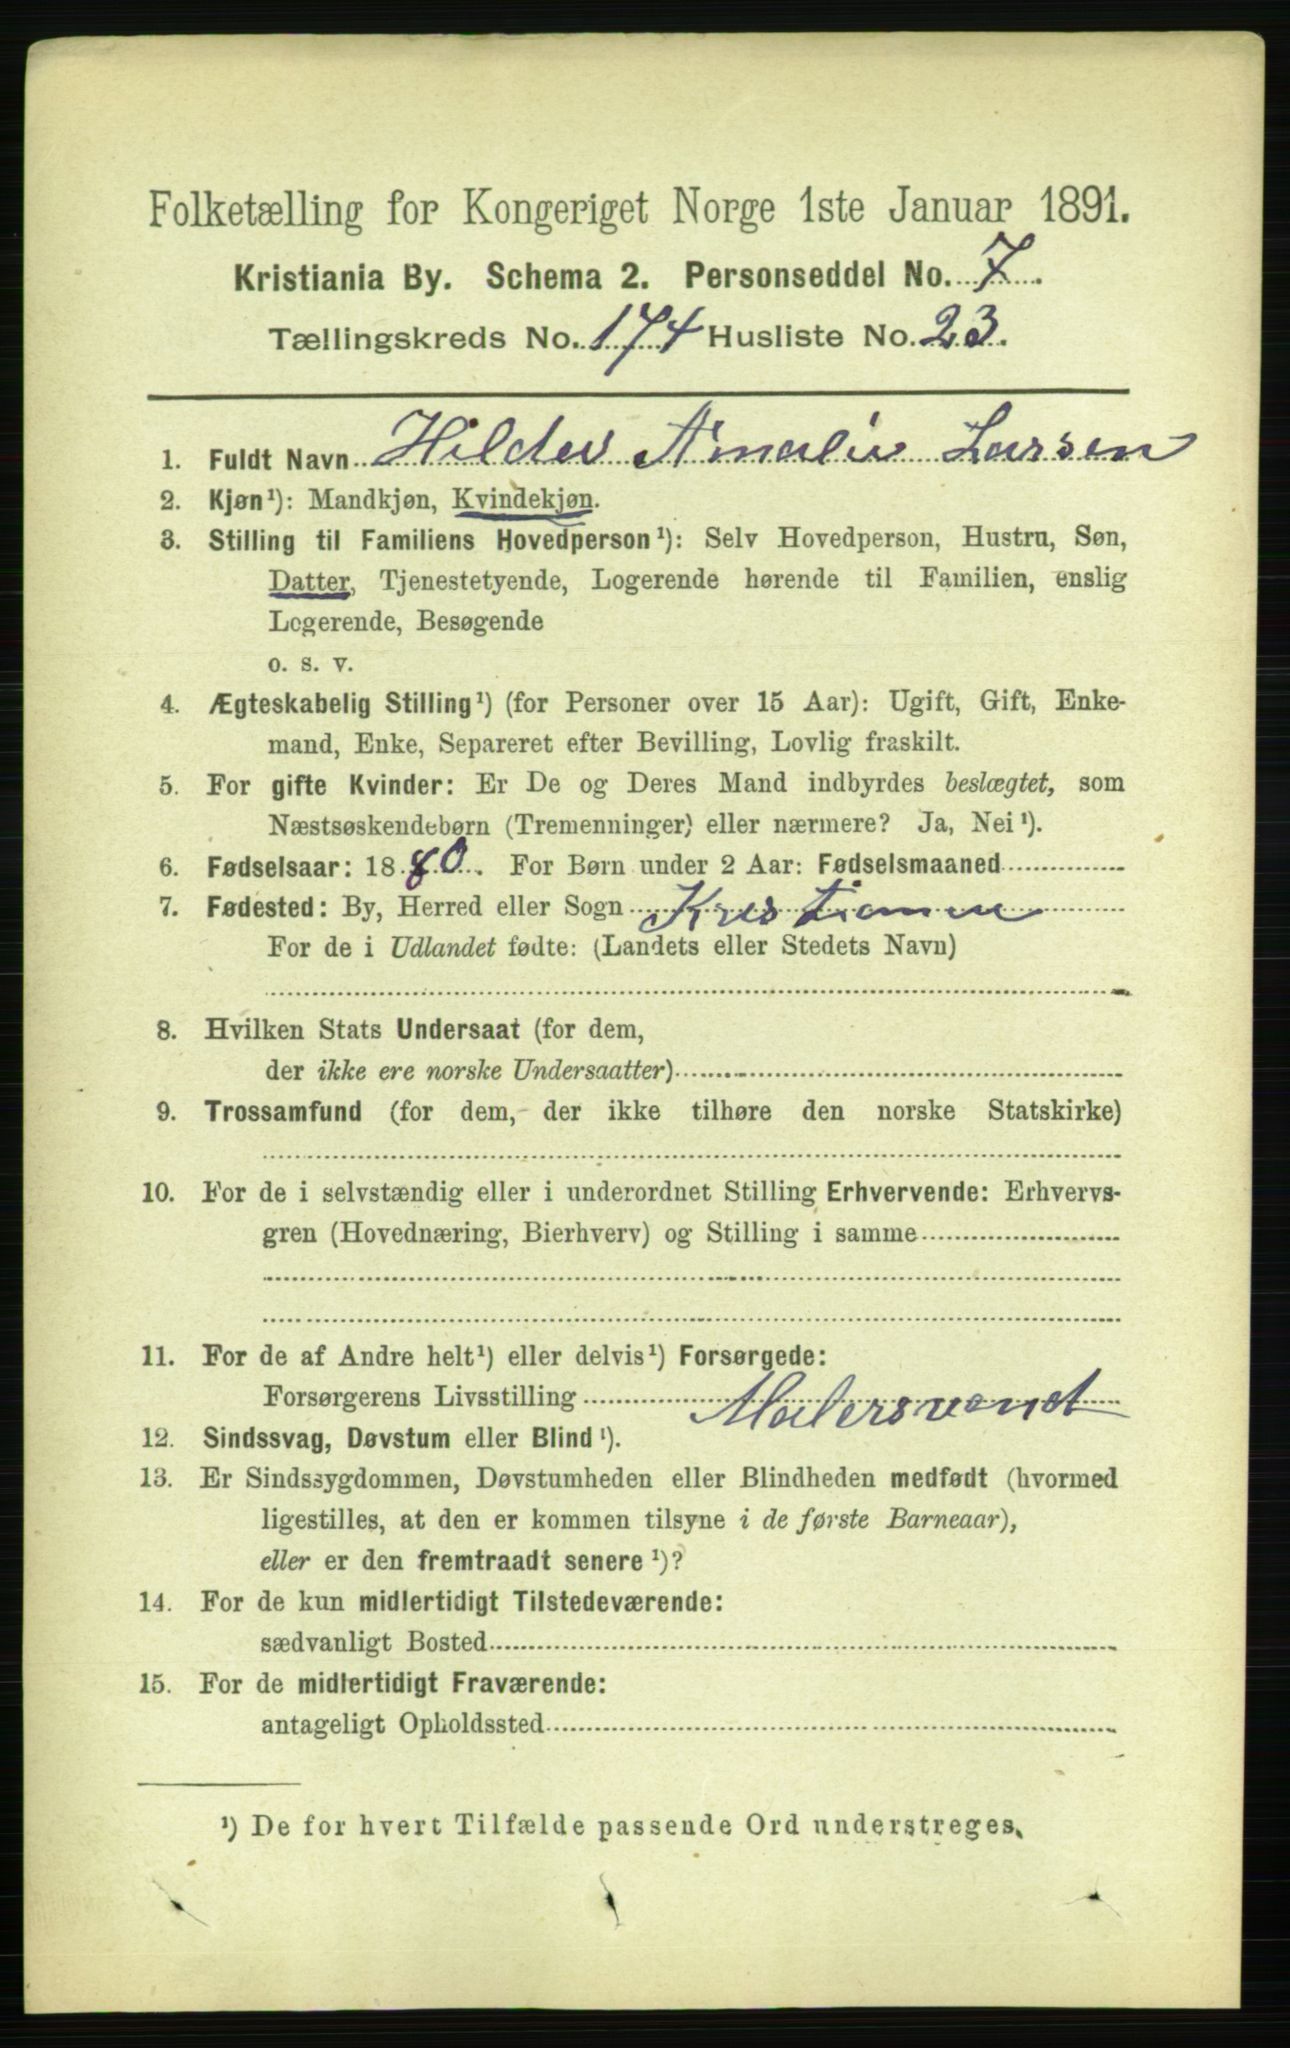 Folketælling for Kongeriget Norge 1ste Januar 1891.
Kristiania By. Schema 2. Personseddel No. 7.
Tællingskreds No. 174 Husliste No. 23.
1. Fuldt Navn Hilda Amalia Larsen
2. Kjøn¹): Mandkjøn, Kvindekjøn.
3. Stilling til Familiens Hovedperson¹): Selv Hovedperson, Hustru, Søn,
Datter, Tjenestetyende, Logerende hørende til Familien, enslig
Logerende, Besøgende
o. s. v.
4. Ægteskabelig Stilling¹) (for Personer over 15 Aar): Ugift, Gift, Enke-
mand, Enke, Separeret efter Bevilling, Lovlig fraskilt.
5. For gifte Kvinder: Er De og Deres Mand indbyrdes beslægtet, som
Næstsøskendebørn (Tremenninger) eller nærmere? Ja, Nei¹).
6. Fødselsaar: 1880. For Børn under 2 Aar: Fødselsmaaned
7. Fødested: By, Herred eller Sogn Kristiania
For de i Udlandet fødte: (Landets eller Stedets Navn)
8. Hvilken Stats Undersaat (for dem,
der ikke ere norske Undersaatter)
9. Trossamfund (for dem, der ikke tilhøre den norske Statskirke)
10. For de i selvstændig eller i underordnet Stilling Erhvervende: Erhvervs-
gren (Hovednæring, Bierhverv) og Stilling i samme
11. For de af Andre helt¹) eller delvis¹) Forsørgede:
Forsørgerens Livsstilling Malersvend
12. Sindssvag, Døvstum eller Blind¹).
13. Er Sindssygdommen, Døvstumheden eller Blindheden medfødt (hvormed
ligestilles, at den er kommen tilsyne i de første Barneaar),
eller er den fremtraadt senere¹)?
14. For de kun midlertidigt Tilstedeværende:
sædvanligt Bosted
15. For de midlertidigt Fraværende:
antageligt Opholdssted
¹) De for hvert Tilfælde passende Ord understreges.